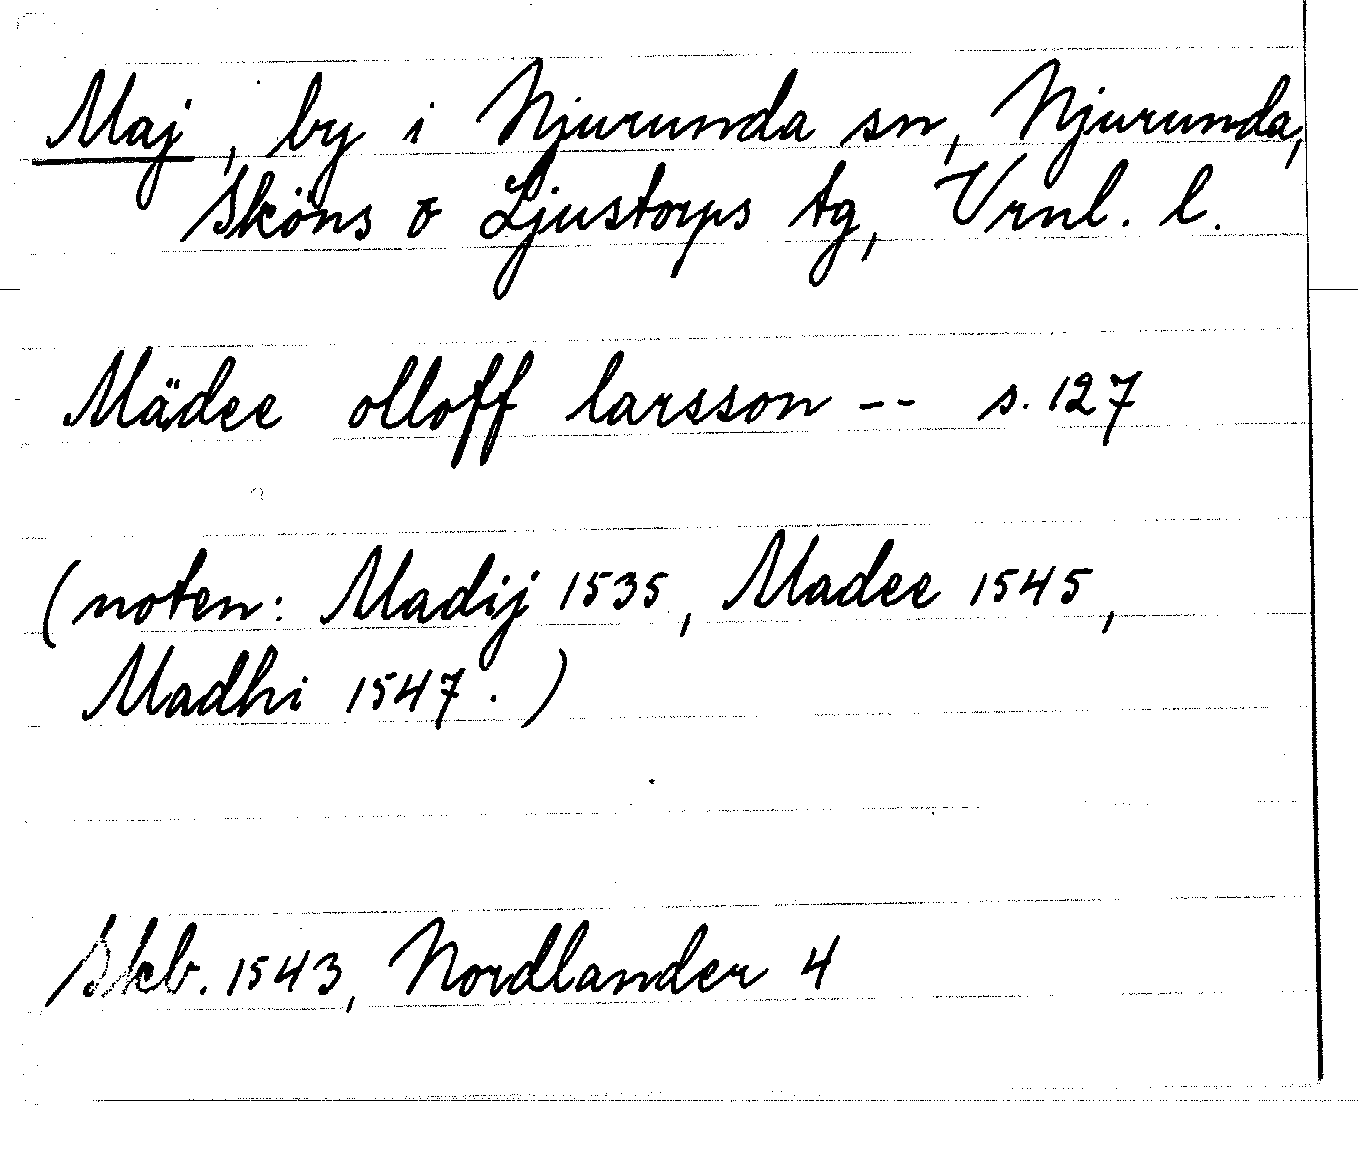 Maj, by i Njurunda sn, Njurunda,
Sköns o Ljustorps tg, Vrnl. l.
Mädee olloff larsson -- s. 127
(noten: Madij 1535, Madee 1545,
Madhi 1547.)
Skb. 1543, Nordlander 4